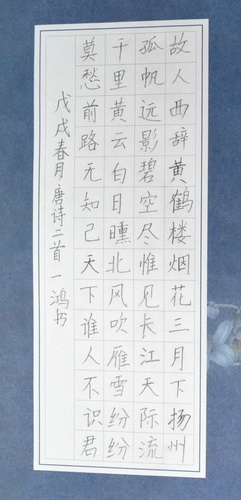 故人西辞黄鹤楼烟花三月下扬州
孤帆远影碧空尽惟见长江天际流
千里黄云白日曛北风吹雁雪纷纷
莫愁前路无知己天下谁人不识君
戊戌春月唐诗二首一鸿书